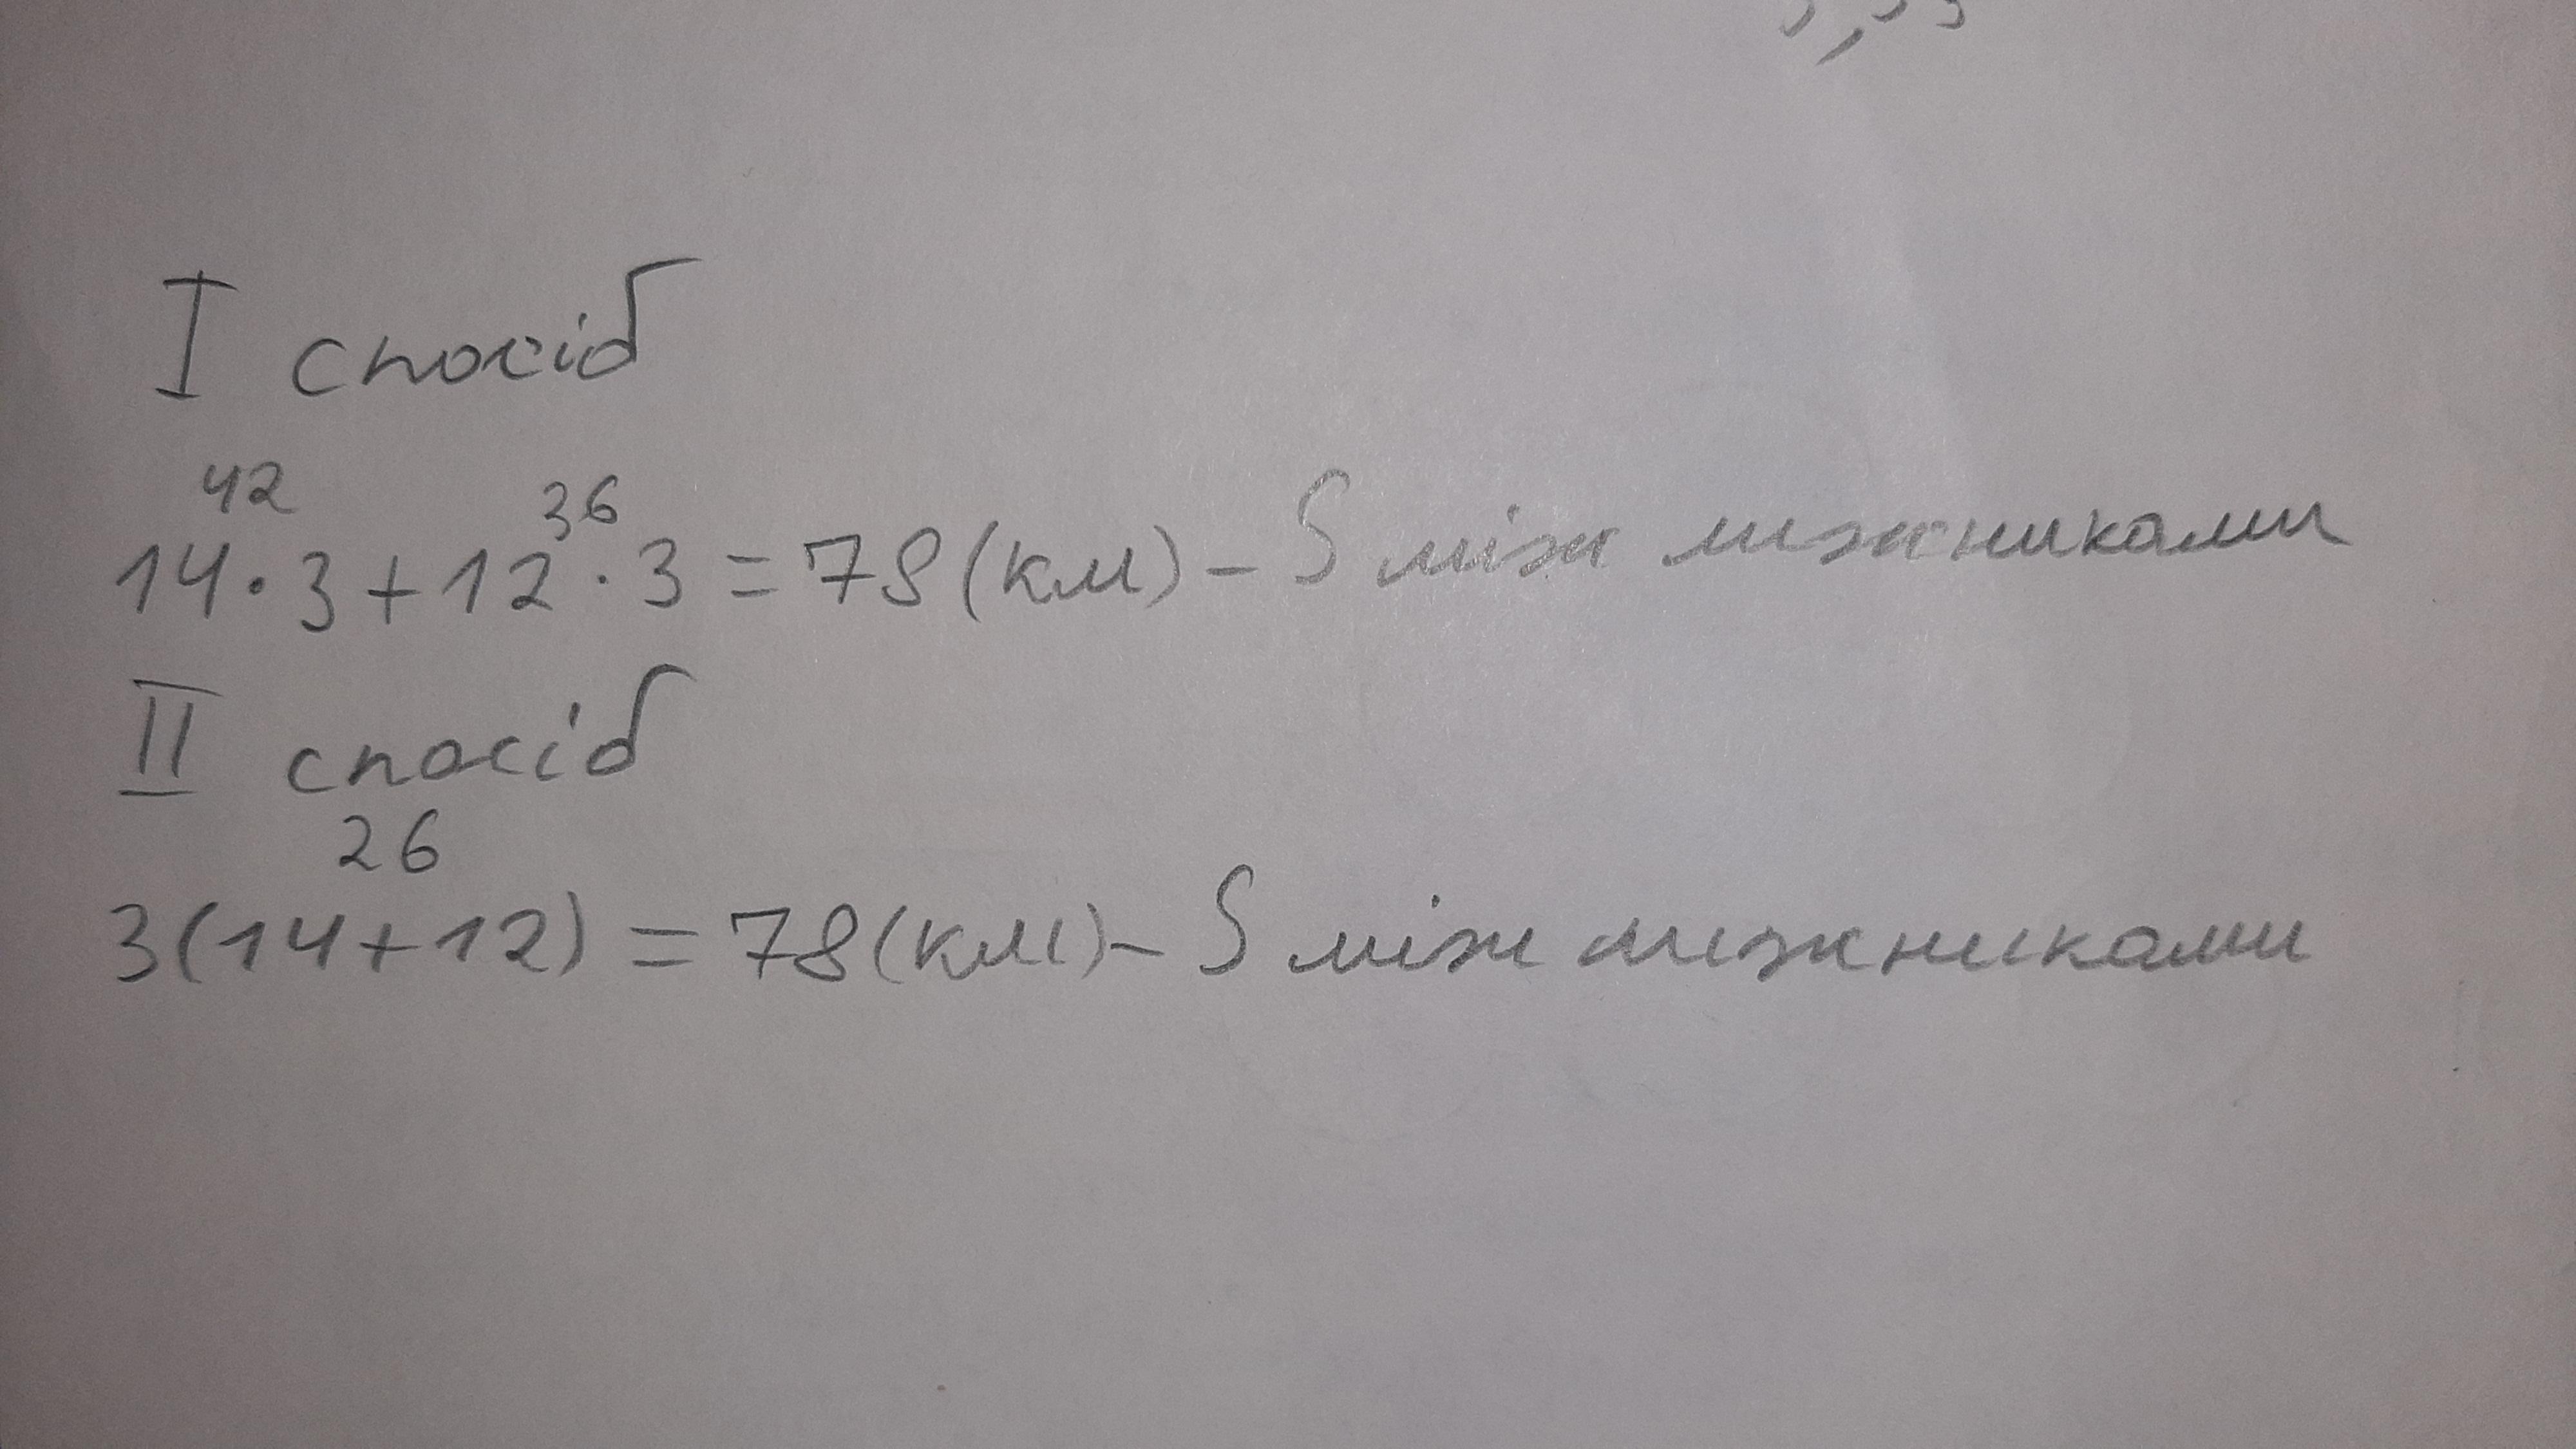 I спосіб
42 36
14·3+12·3=78(км)-S між лижниками
II спосіб
26
3(14+12)=78(км)-S між лижниками